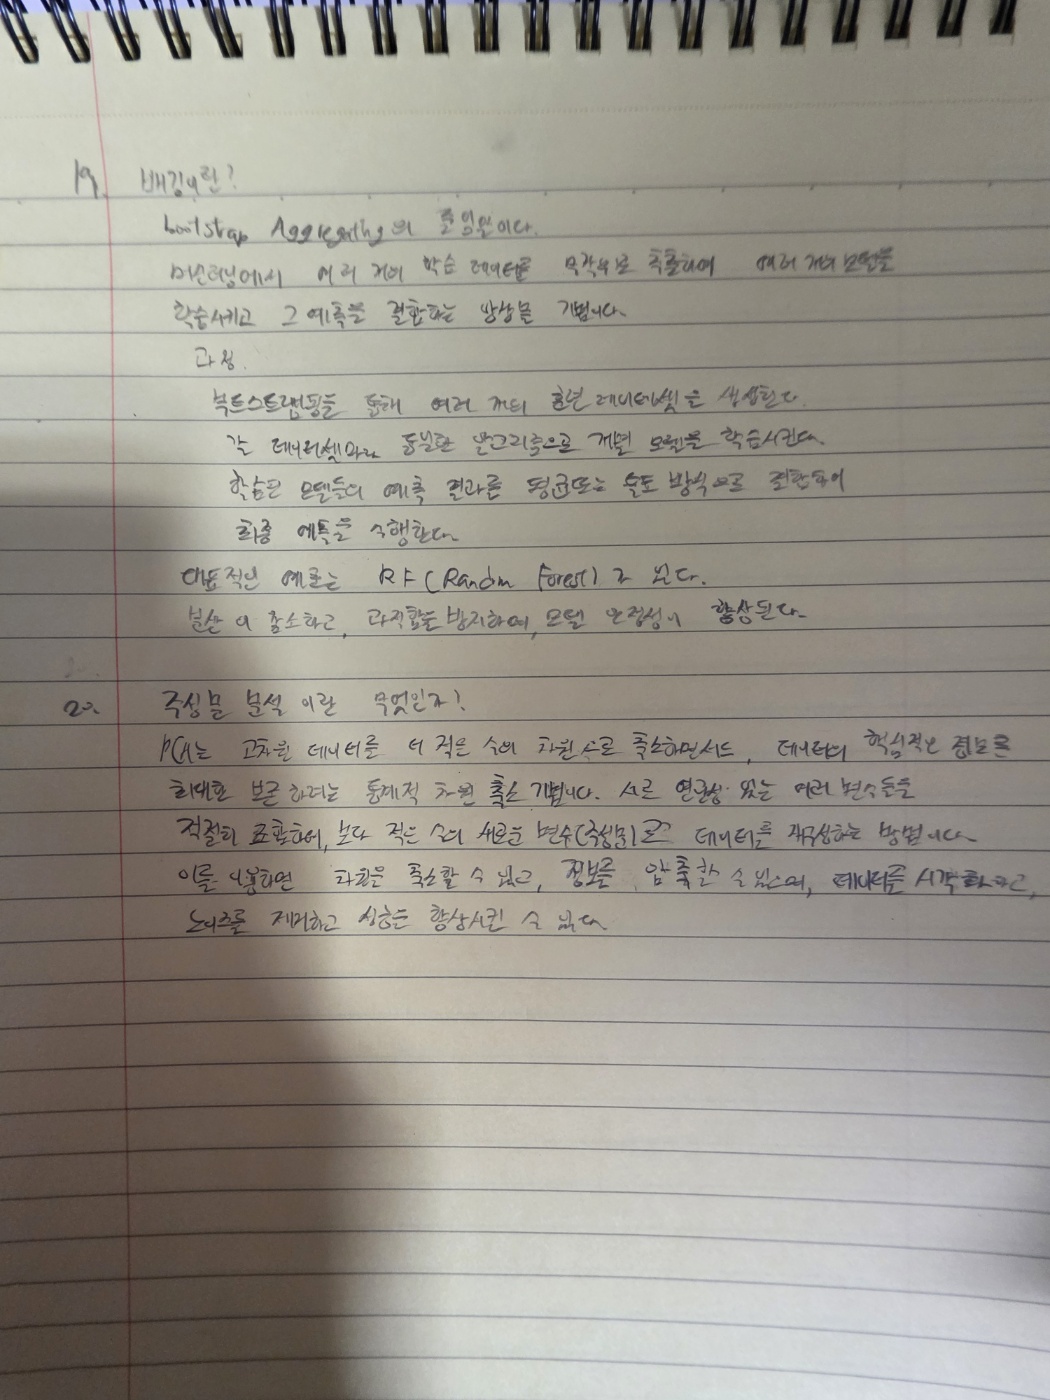 19. 배깅이란?
bootstrap Aggregating의 줄임말이다.
머신러닝에서 여러 개의 학습 데이터를 무작위로 추출하여 여러 개의 모델을
학습시키고 그 예측을 결합하는 앙상블 기법이다.
과정.
부트스트랩핑을 통해 여러 개의 훈련 데이터셋을 생성한다.
각 데이터셋마다 동일한 알고리즘으로 개별 모델을 학습시킨다.
학습된 모델들의 예측 결과를 평균또는 술도 방식으로 결합하여
최종 예측을 수행한다.
대표적인 예로는 RF(Random Forest)가 있다.
분산이 감소하고, 과적합을 방지하여, 모델 안정성이 향상된다.
20. 주성분 분석이란 무엇인가?
PCA는 고차원 데이터를 더 적은 수의 차원수로 축소하면서도, 데이터의 핵심적인 정보를
최대한 보존하려는 통계적 차원 축소 기법이다. 서로 연관성 있는 여러 변수들을
적절히 조합하여, 보다 적은 수의 새로운 변수(주성분)로 데이터를 재구성하는 방법이다.
이를 이용하면 차원을 축소할 수 있고, 정보를 압축할 수 있으며, 데이터를 시각화하고,
노이즈를 제거하고 성능을 향상시킬 수 있다.